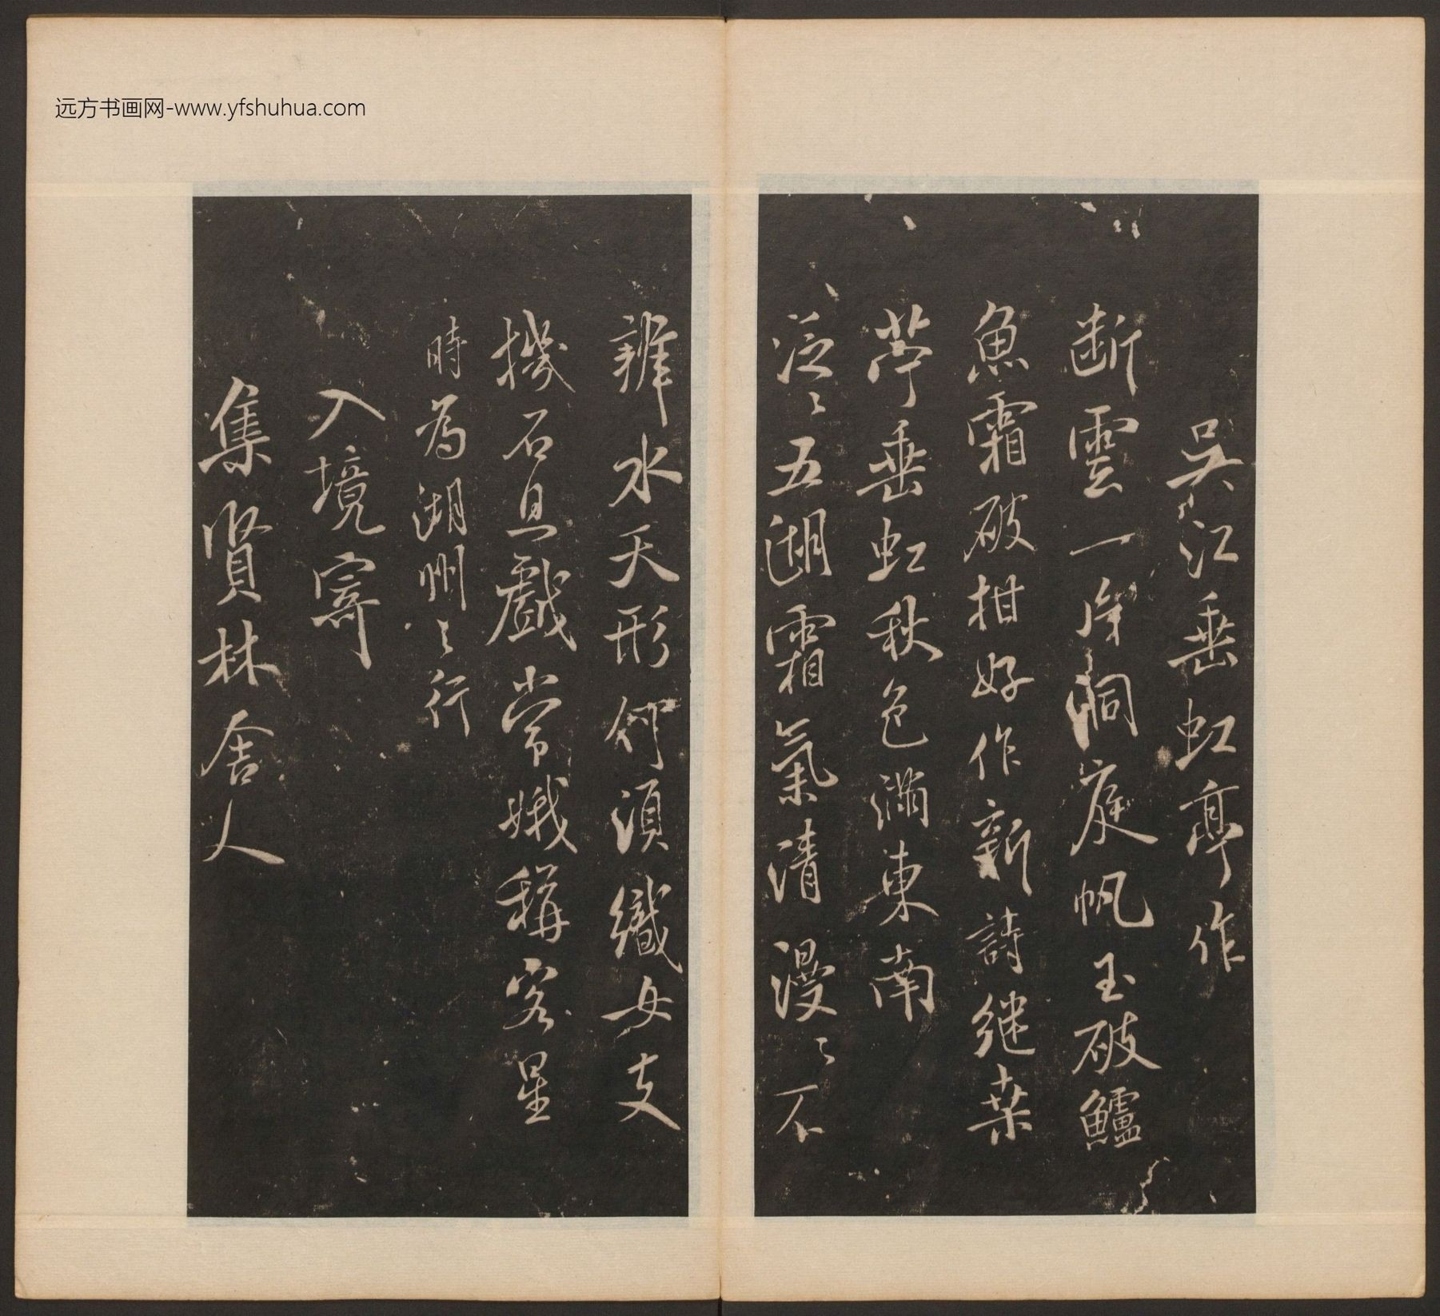 远方书画网-www.yfshuhua.com
吳江垂虹亭作
断雲一片洞庭帆玉破鱸
魚霜破柑好作新詩继桒
苧垂虹秋色滿東南
泛〻五湖霜氣清漫〻不
辨水天形何須織女支
機石且戲常娥稱客星
時為湖州之行
入境寄
集賢林舍人